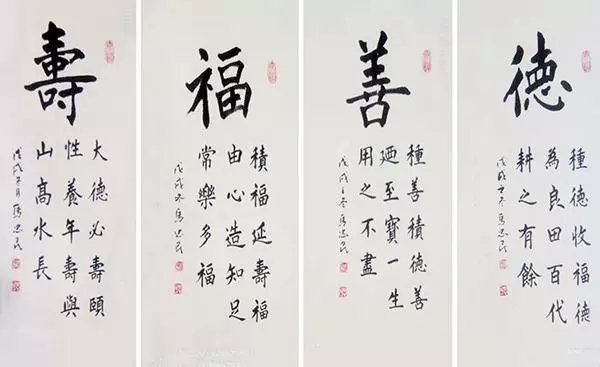 德
種德收福德
為良田百代
耕之有餘
戊戌 冬馬忠民
善
種善積德善
廼至寶一生
用之不盡
戊戌 冬馬忠民
福
積福延壽福
由心造知足
常樂多福
戊戌冬馬忠民
壽
大德必壽頤
性養年壽與
山高水長
戊戌 月馬忠民